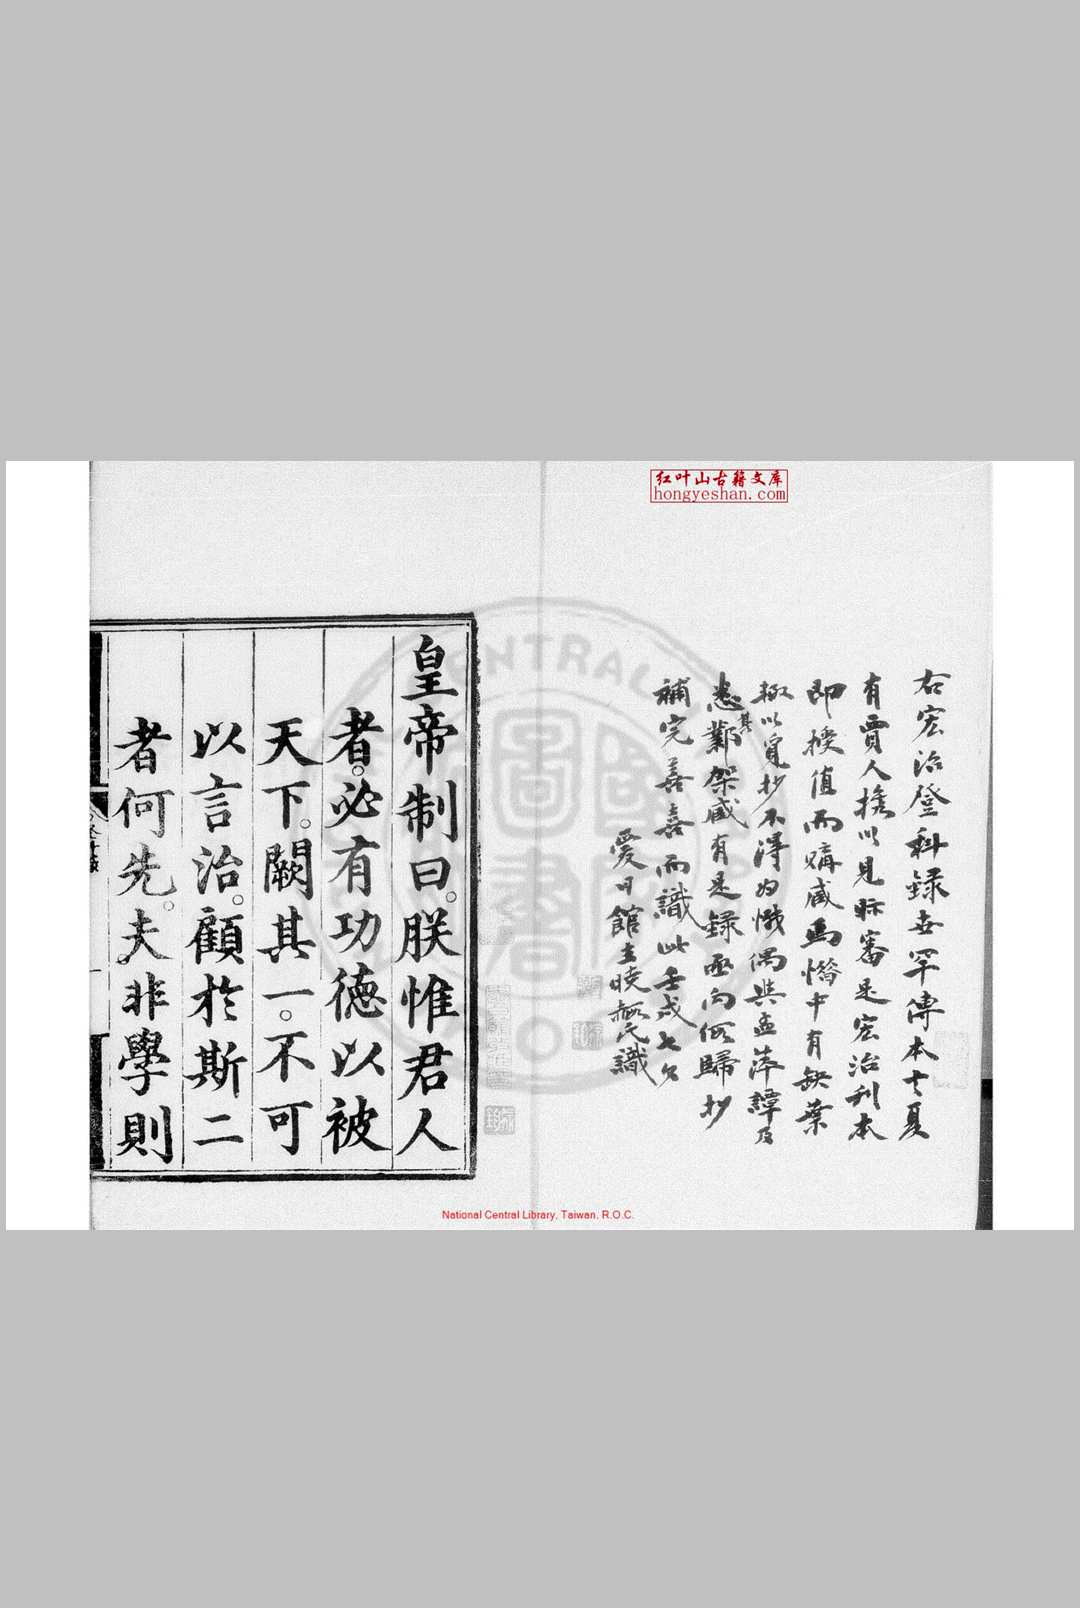 红叶山古籍文库
hongyeshan.com
右宏治登科録世罕傳本去夏
有賈人攜以見眎審是宏治刊本
即授值而購藏焉惜中有缺葉
極以覓抄不淂為慨偶與孟蘋譚及
悉其鄴架藏有是録亟向假歸抄
補完善喜而識此壬戌七夕
愛日館主 氏識
皇帝制曰。朕惟君人
者。必有功德以被
天下。闕其一。不可
以言治。顧於斯二
者何先。夫非學則
National Central Library, Taiwan. R.O.C.